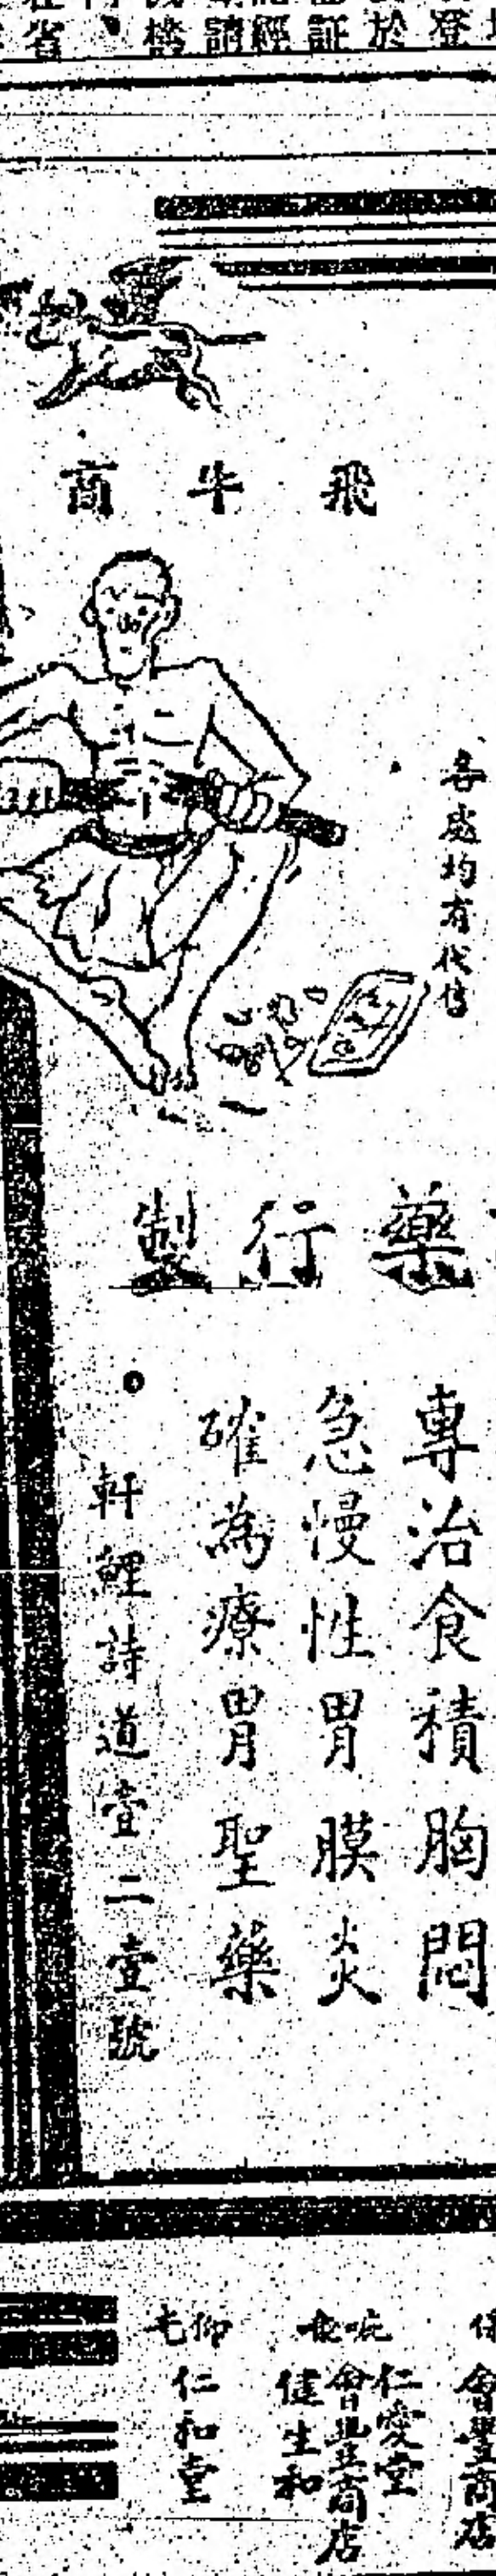 飛牛商
各處均有代售
藥行製
專治食積胸悶
急慢性胃膜炎
確為療胃聖藥
軒鯉詩道壹二壹號
會豐商店
仁愛堂
會豐商店
健生和
仰毛
仁和堂